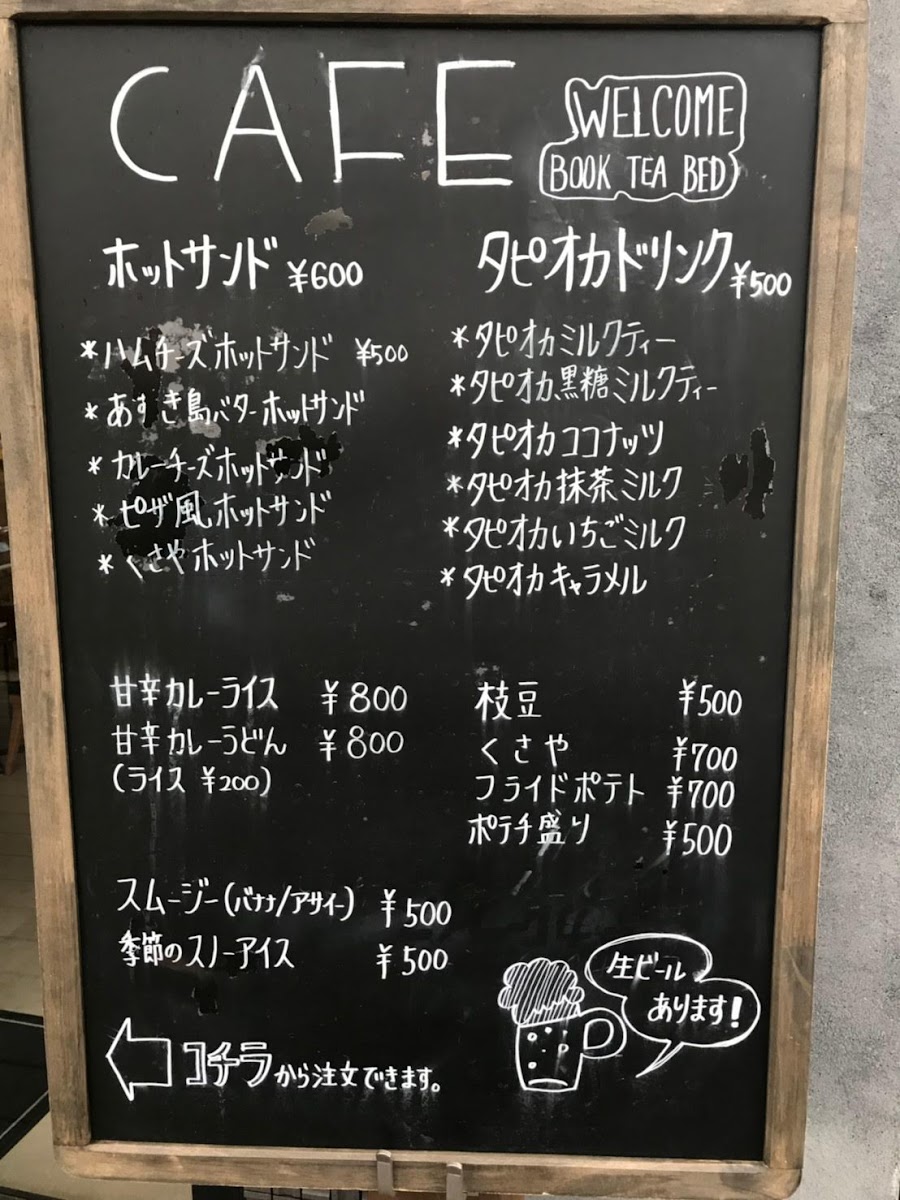 CAFE
WELCOME
BOOK TEA BED
ホットサンド ¥600
*ハムチーズホットサンド ¥500
*あすき島バターホットサンド
*カレーチーズホットサンド
*ピザ風ホットサンド
*くさやホットサンド
タピオカドリンク ¥500
*タピオカミルクティー
*タピオカ黒糖ミルクティー
*タピオカココナッツ
*タピオカ抹茶ミルク
*タピオカいちごミルク
*タピオカキャラメル
甘辛カレーライス ¥800
甘辛カレーうどん ¥800
(ライス ¥200)
枝豆 ¥500
くさや ¥700
フライドポテト ¥700
ポテチ盛り ¥500
スムージー(バナナ/アサイー) ¥500
季節のスノーアイス ¥500
生ビール
あります!
コチラから注文できます。